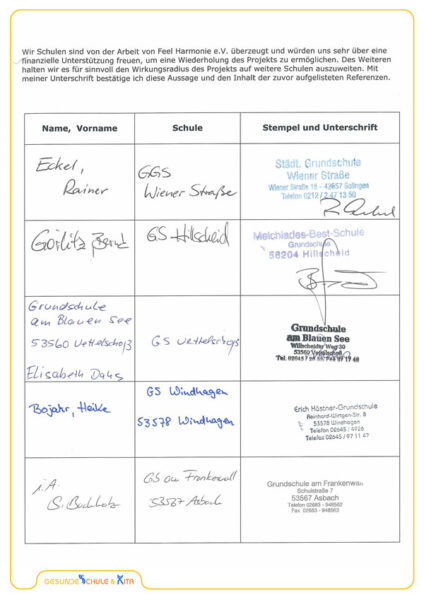 Wir Schulen sind von der Arbeit von Feel Harmonie e.V. überzeugt und würden uns sehr über eine
finanzielle Unterstützung freuen, um eine Wiederholung des Projekts zu ermöglichen. Des Weiteren
halten wir es für sinnvoll den Wirkungsradius des Projekts auf weitere Schulen auszuweiten. Mit
meiner Unterschrift bestätige ich diese Aussage und den Inhalt der zuvor aufgelisteten Referenzen.
Name, Vorname Schule Stempel und Unterschrift
Eckel,
Rainer
GGS
Wiener Straße
Städt. Grundschule
Wiener Straße
Wiener Straße 15 - 42657 Solingen
Telefon 0212 / 2 47 13 50
Görlitz Bernd
GS Hillscheid
Melchiades-Best-Schule
Grundschule
56204 Hillscheid
Grundschule
am Blauen See
53560 Vettelschoß
Elisabeth
GS Vettelschoß
Grundschule
am Blauen See
Willscheider Weg 30
53560 Vettelschoß
Bojahr, Heike
GS Windhagen
53578 Windhagen
Erich Kästner-Grundschule
Reinhard-Wirtgen-Str. 8
53578 Windhagen
Telefon 02645 / 4926
Telefax 02645 / 97 11 47
i.A.
S. Buchholz
GS am Frankenwall
53567 Asbach
Grundschule am Frankenwall
Schulstraße 7
53567 Asbach
Telefon 02683 - 948562
Fax 02683 - 948563
GESUNDE SCHULE & KITA